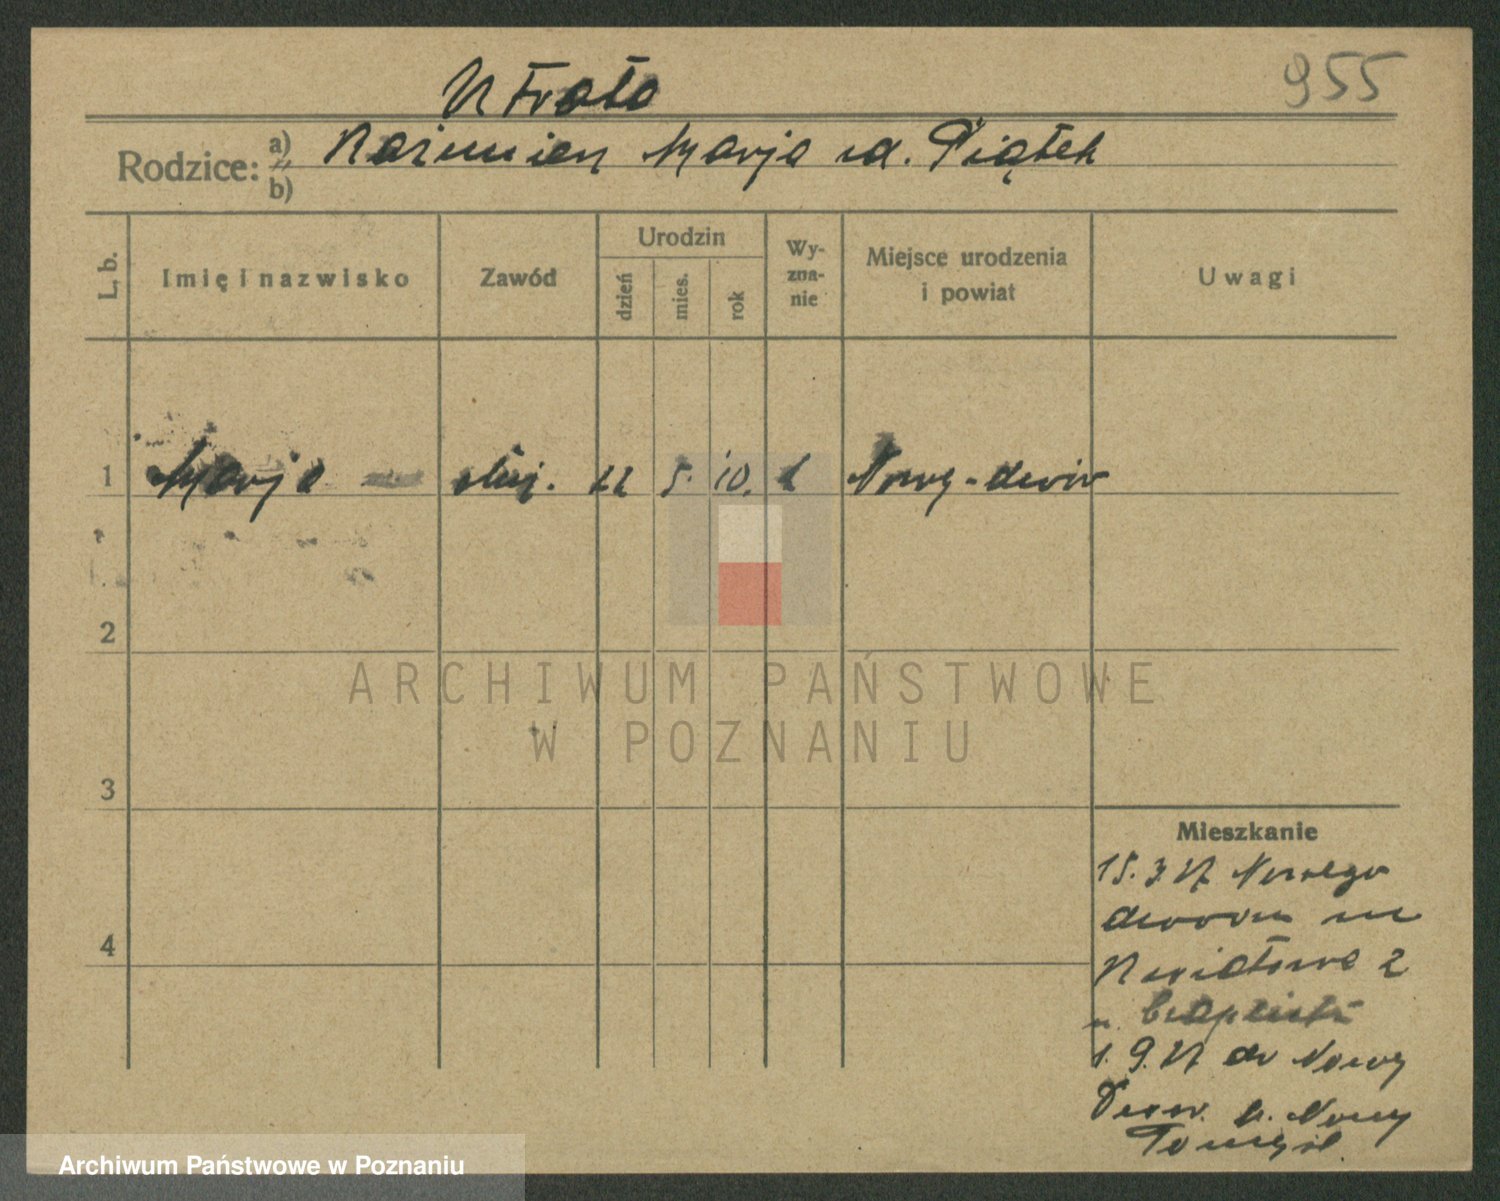 Utrata
955
Rodzice: a) Kazimierz Marja ur. Piątek
b)
L. b.
Imię i nazwisko
Zawód
Urodzin
dzień
mies.
rok
Wy-
zna-
nie
Miejsce urodzenia
i powiat
Uwagi
1 Marja służ. 22 5. 10. k Nowy-dwór
2
3
4
Mieszkanie
15.3.27 Nowego
dworu
2
u
1.9.27 do Nowy
Dwór. p. Nowy
Tomyśl.
ARCHIWUM PAŃSTWOWE
W POZNANIU
Archiwum Państwowe w Poznaniu